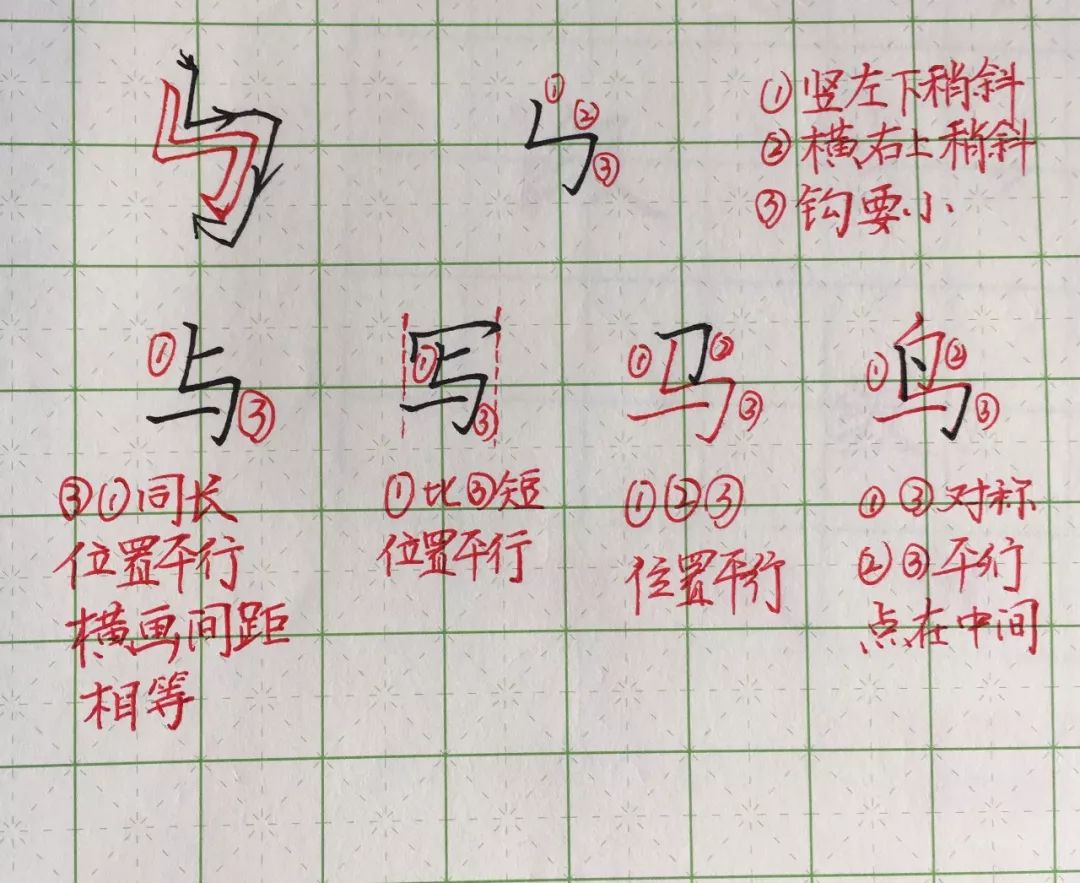 ㇉ ① ② ③
①竖左下稍斜
②横右上稍斜
③钩要小
与 ① ③
写 ① ③
马 ① ② ③
鸟 ① ② ③
③①同长
位置平行
横画间距
相等
①比③短
位置平行
①②③
位置平行
①③对称
②③平行
点在中间